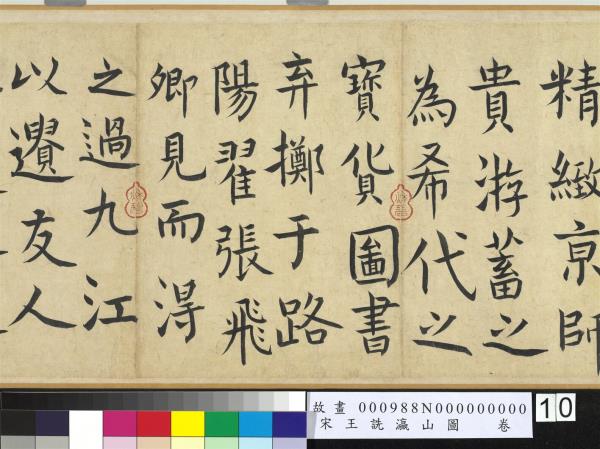 精緻京師
貴游蓄之
為希代之
寶貨圖書
弃擲于路
陽翟張飛
卿見而淂
之過九江
以遺友人
故畫 000988N000000000
宋王詵瀛山圖 卷
10